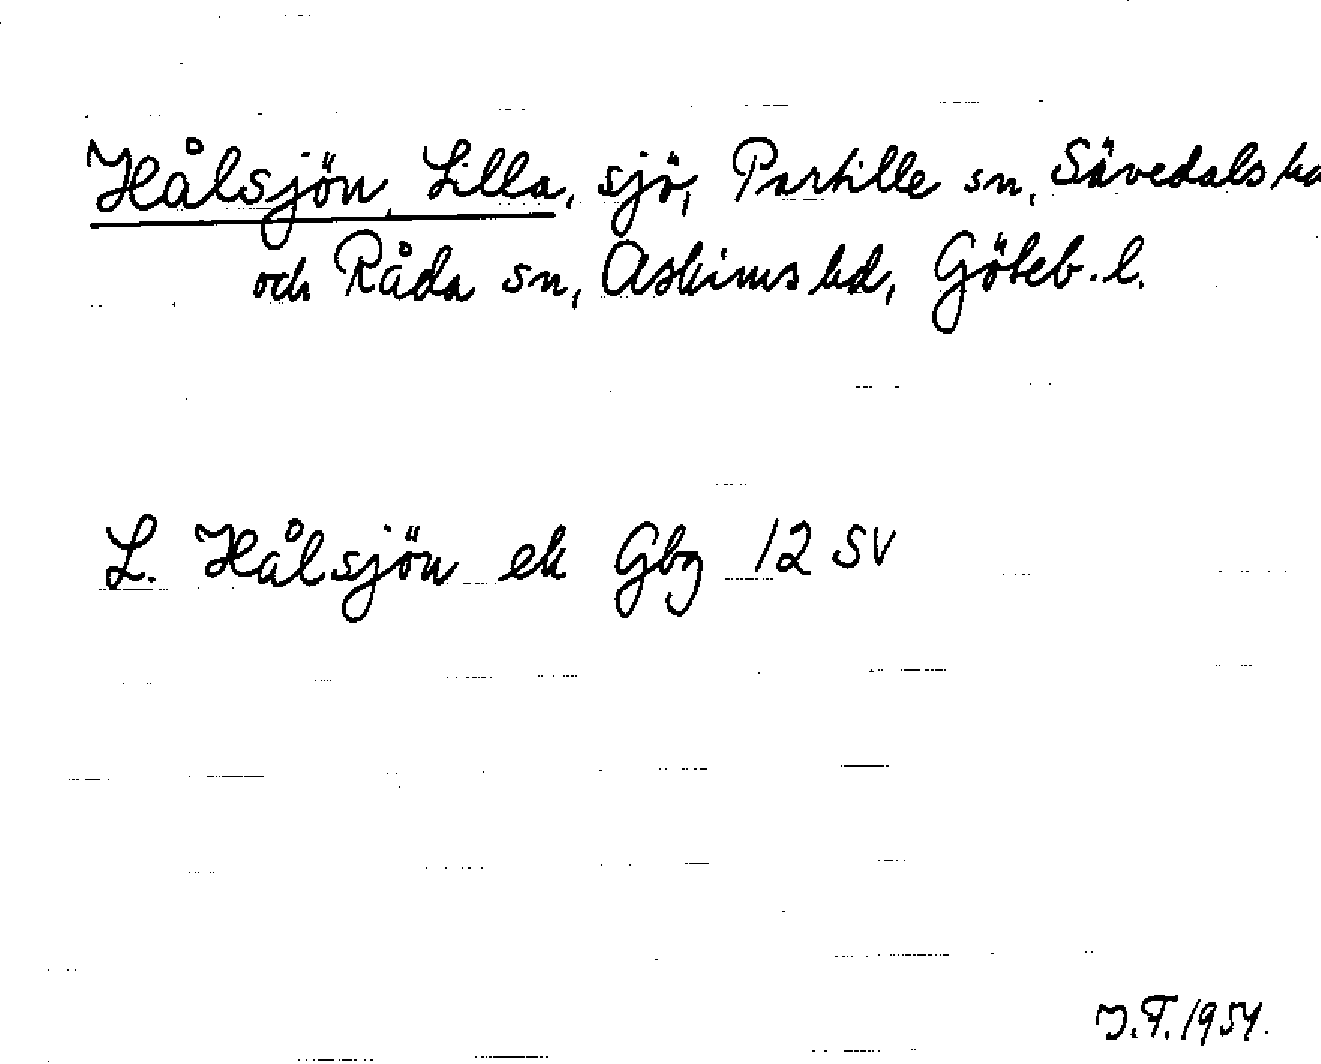 Hålsjön, Lilla, sjö, Partille sn, Sävedals hd
och Råda sn, Askims hd, Göteb. l.
L. Hålsjön ek Gbg 12 SV
J.F. 1954.